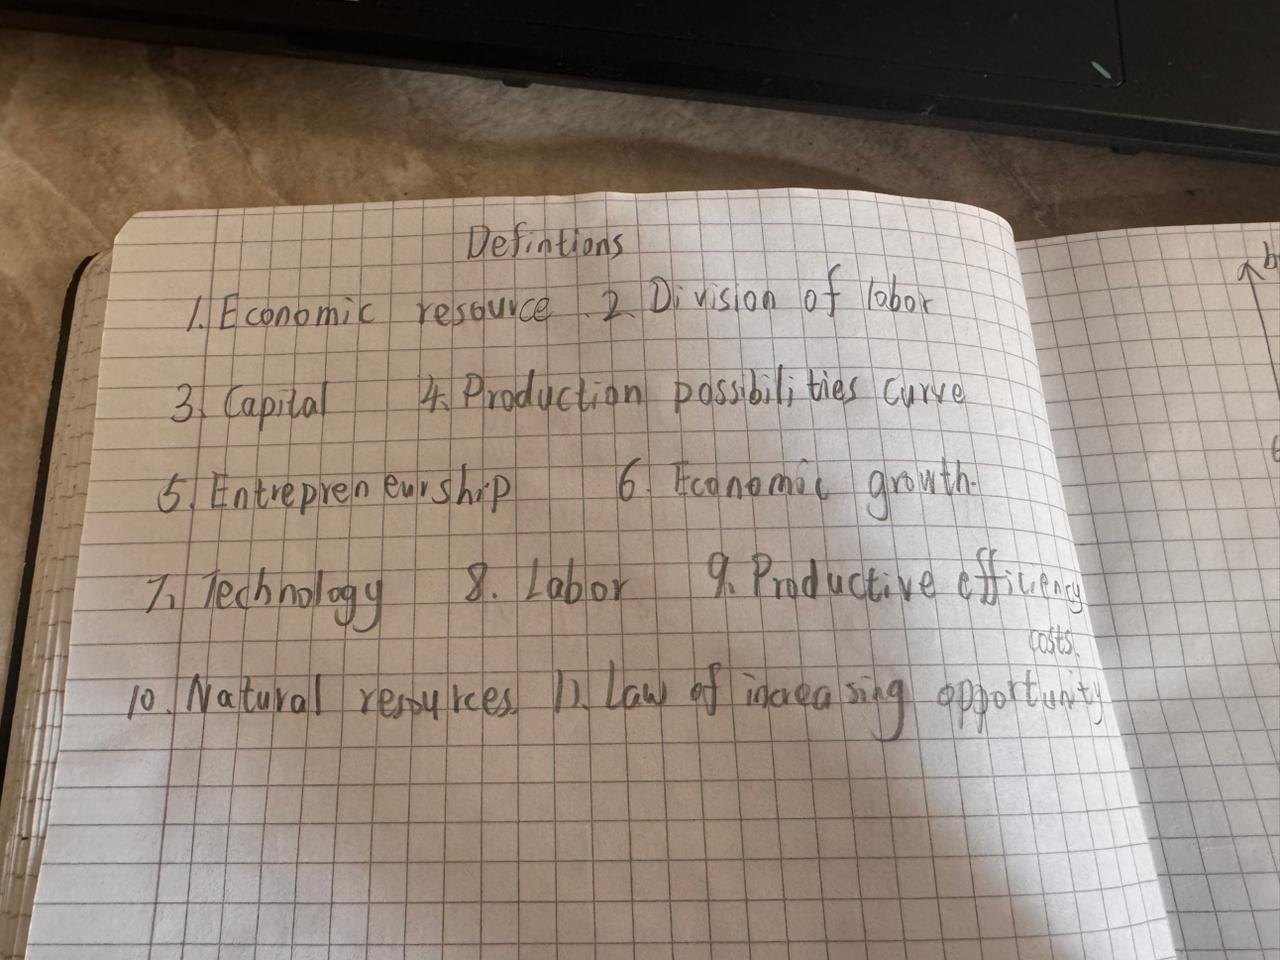 Defintions
1. Economic resource 2. Division of labor
3. Capital 4. Production possibilities curve
5. Entrepreneurship 6. Economic growth.
7. Technology 8. Labor 9. Productive efficiency
costs.
10. Natural resources. 11. Law of increasing opportunity
b